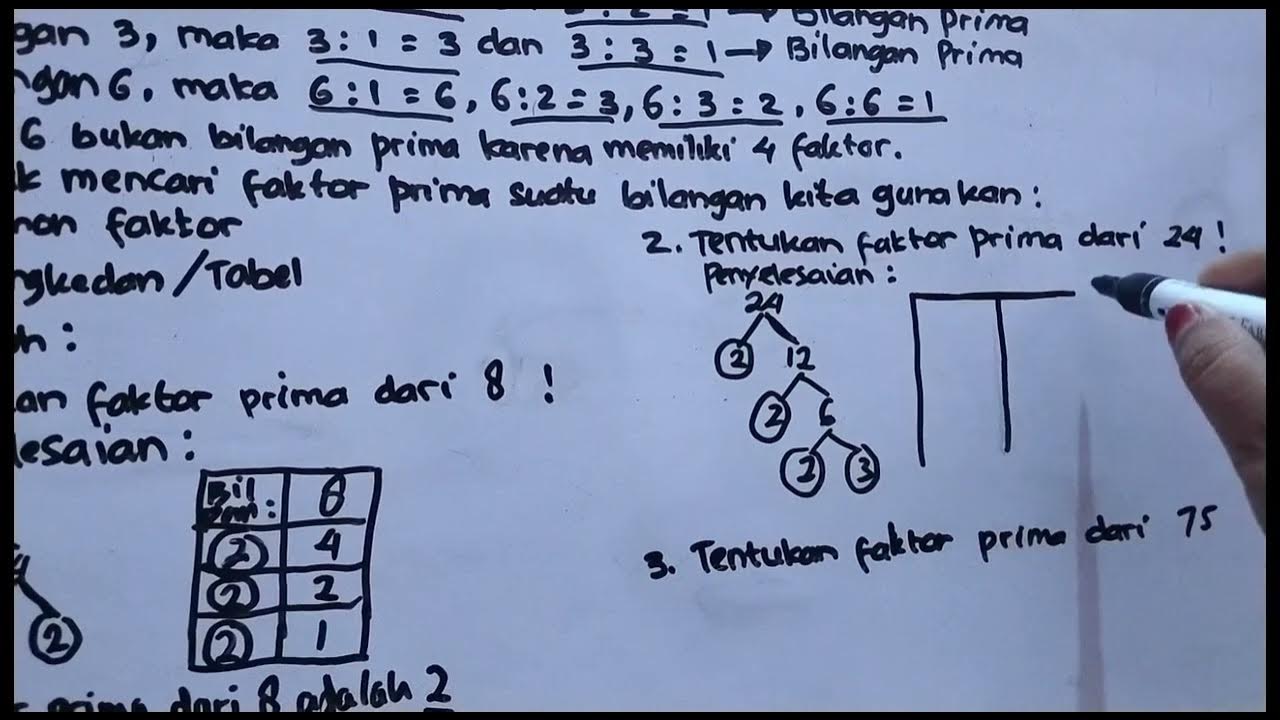 2 : 2 = 1 → Bilangan Prima
gan 3, maka 3 : 1 = 3 dan 3 : 3 = 1 → Bilangan Prima
ngan 6, maka 6 : 1 = 6, 6 : 2 = 3, 6 : 3 = 2, 6 : 6 = 1
6 bukan bilangan prima karena memiliki 4 faktor.
k mencari faktor prima suatu bilangan kita gunakan :
hon faktor
ngkedan / Tabel
h :
an faktor prima dari 8 !
lesaian :
2
Bil Prim : 8
2 4
2 2
2 1
prima dari 8 adalah 2
2. Tentukan faktor prima dari 24 !
Penyelesaian :
24
2 12
2 6
2 3
3. Tentukan faktor prima dari 75